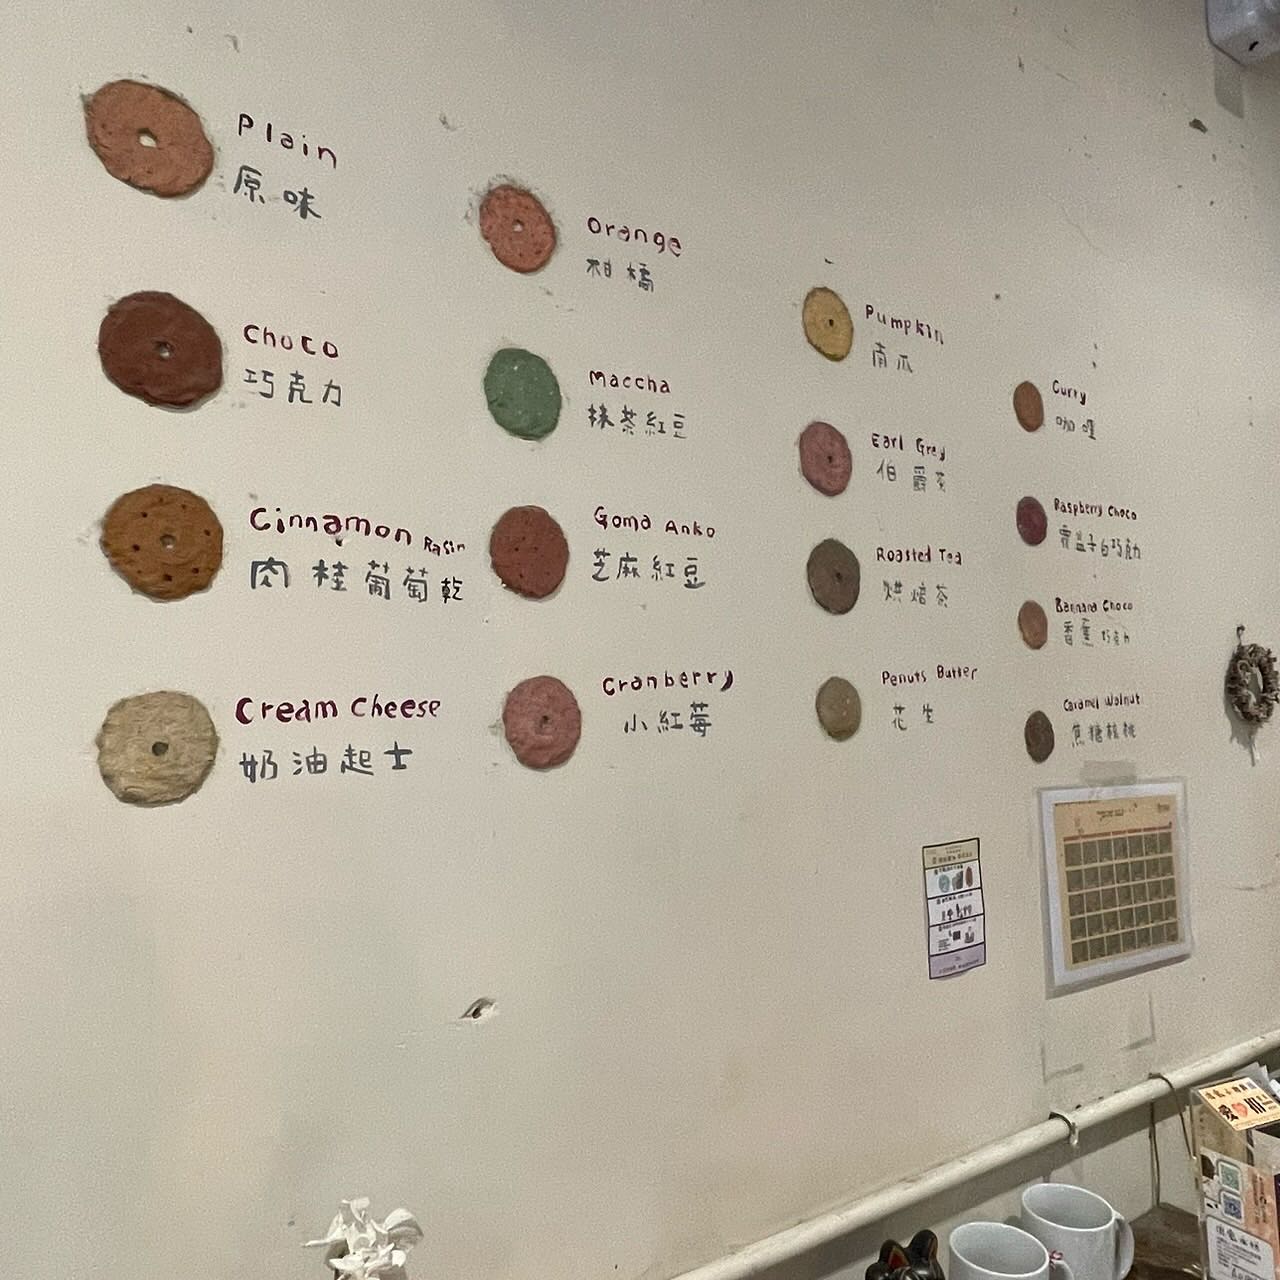 Plain
原味
Choco
巧克力
Cinnamon Rasin
肉桂葡萄乾
Cream Cheese
奶油起士
Orange
柑橘
Maccha
抹茶紅豆
Goma Anko
芝麻紅豆
Cranberry
小紅莓
Pumpkin
南瓜
Earl Grey
伯爵茶
Roasted Tea
烘焙茶
Penuts Butter
花生
Curry
咖哩
Raspberry Choco
覆盆子白巧克力
Bannana Choco
香蕉巧克力
Caramel Walnut
焦糖核桃